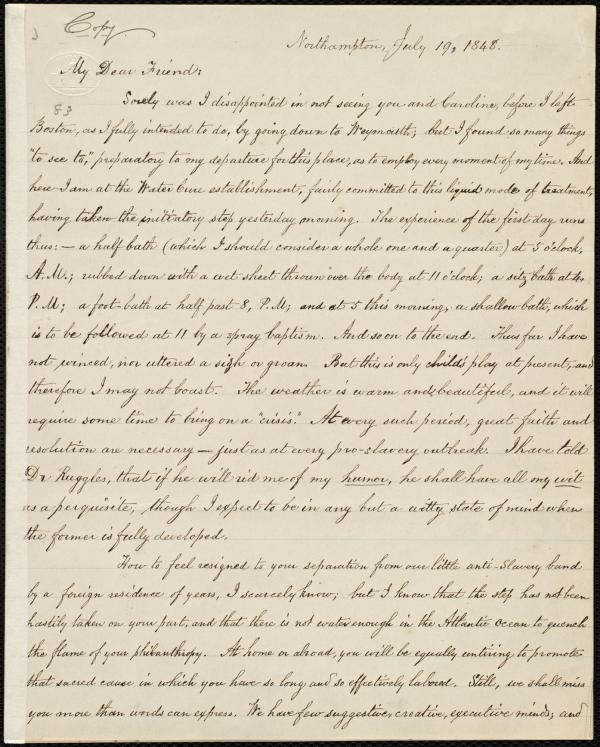 Copy
Northampton, July 19, 1848.
My Dear Friend:
83
Sorely was I disappointed in not seeing you and Caroline, before I left
Boston, as I fully intended to do, by going down to Weymouth; but I found so many things
"to see to," preparatory to my departure for this place, as to employ every moment of my time. And
here I am at the Water Cure establishment, fairly committed to this liquid mode of treatment,
having taken the initiatory step yesterday morning. The experience of the first day runs
thus: — a half bath (which I should consider a whole one and a quarter) at 5 o'clock,
A.M.; rubbed down with a wet sheet thrown over the body at 11 o'clock; a sitz bath at 4,
P.M; a foot-bath at half past 8, P.M; and at 5 this morning, a shallow bath, which
is to be followed at 11 by a spray baptism. And so on to the end. Thus far I have
not winced, nor uttered a sigh or groan. But this is only child's play at present, and
therefore I may not boast. The weather is warm and beautiful, and it will
require some time to bring on a "crisis." At every such period, great faith and
resolution are necessary — just as at every pro-slavery outbreak. I have told
Dr Ruggles, that if he will rid me of my humor, he shall have all my wit
as a perquisite, though I expect to be in any but a witty state of mind when
the former is fully developed.
How to feel resigned to your separation from our little anti-Slavery band
by a foreign residence of years, I scarcely know; but I know that the step has not been
hastily taken on your part, and that there is not water enough in the Atlantic Ocean to quench
the flame of your philanthropy. At home or abroad, you will be equally untiring to promote
that sacred cause in which you have so long and so effectively labored. Still, we shall miss
you more than words can express. We have few suggestive, creative, executive minds; and